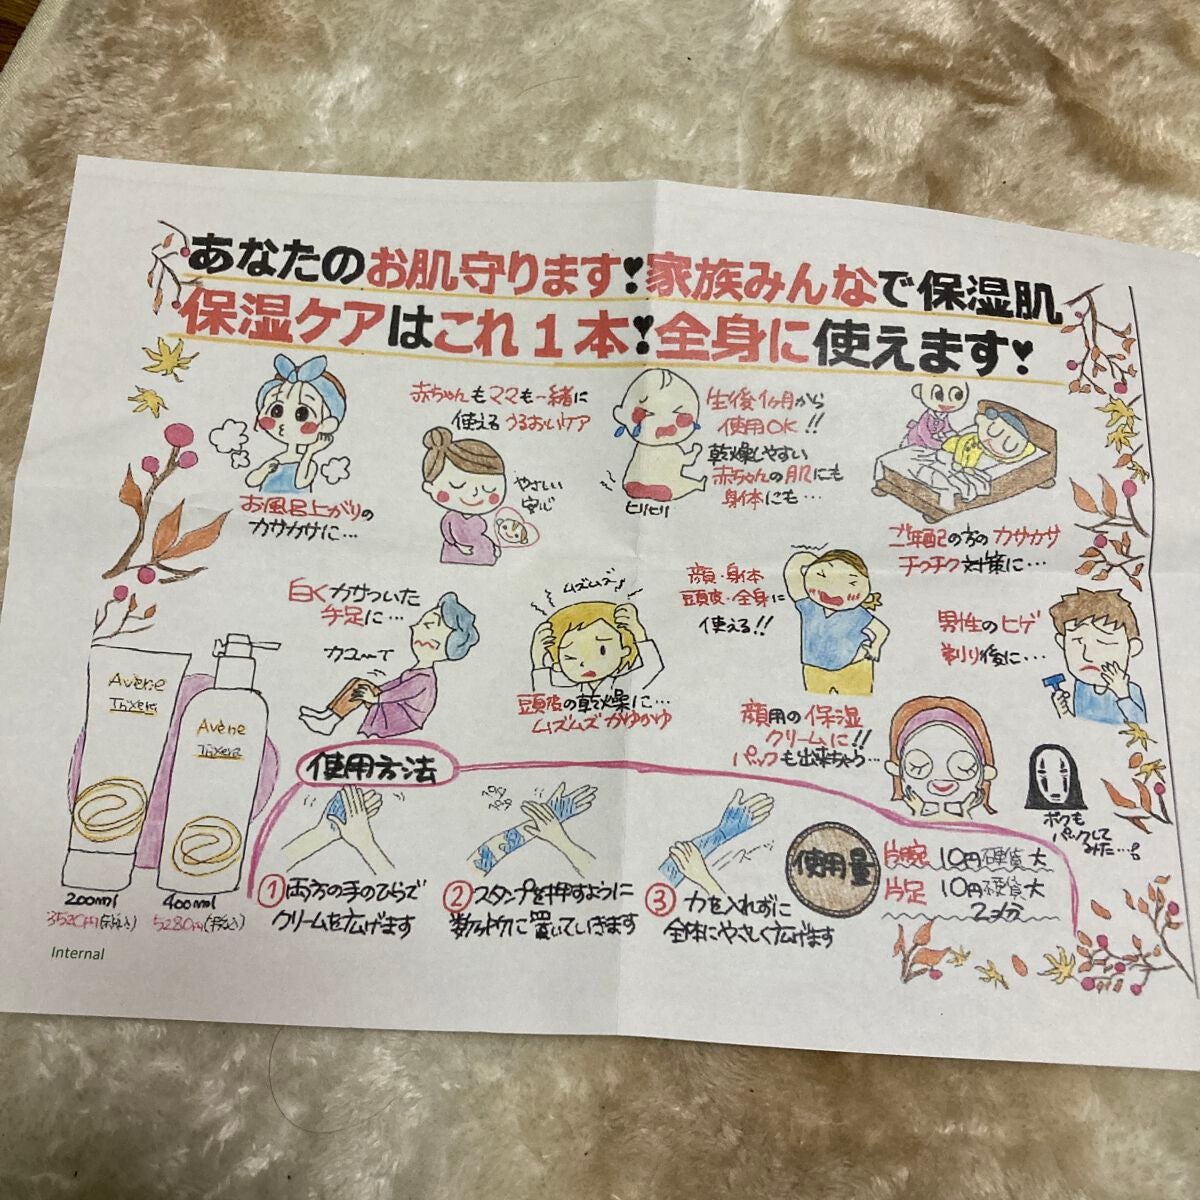 あなたのお肌守ります!家族みんなで保湿肌
保湿ケアはこれ1本!全身に使えます♥
お風呂上がりの
カサカサに…
赤ちゃんもママも一緒に
使えるうるおいケア
やさしい
安心
ヒリヒリ
生後1ヶ月から
使用OK!!
乾燥しやすい
赤ちゃんの肌にも
身体にも…
ご年配の方のカサカサ
チクチク対策に…
白くカサついた
手足に…
カユ〜て
ムズムズ
頭皮の乾燥に…
ムズムズかゆかゆ
顔・身体
頭皮・全身に
使える!!
男性のヒゲ
剃り後に…
顔用の保湿
クリームに!!
パックも出来ちゃう…
ボクも
パックして
みた…
Avène
Trixera
Avène
Trixera
200ml
3520円(税込)
400ml
5280円(税込)
使用方法
①両方の手のひらで
クリームを広げます
②スタンプを押すように
数ヶ所に置いていきます
③力を入れずに
全体にやさしく広げます
使用量
片腕 10円硬貨大
片足 10円硬貨大
2コ分
Internal